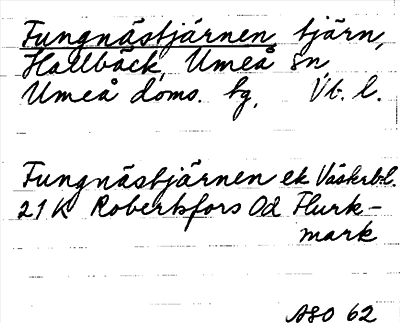 Fungnästjärnen, tjärn,
Hallbäck, Umeå sn,
Umeå doms. tg, Vb. l.
Fungnästjärnen ek Västerb l.
21 K Robertsfors Od Flurk-
mark
ASO 62